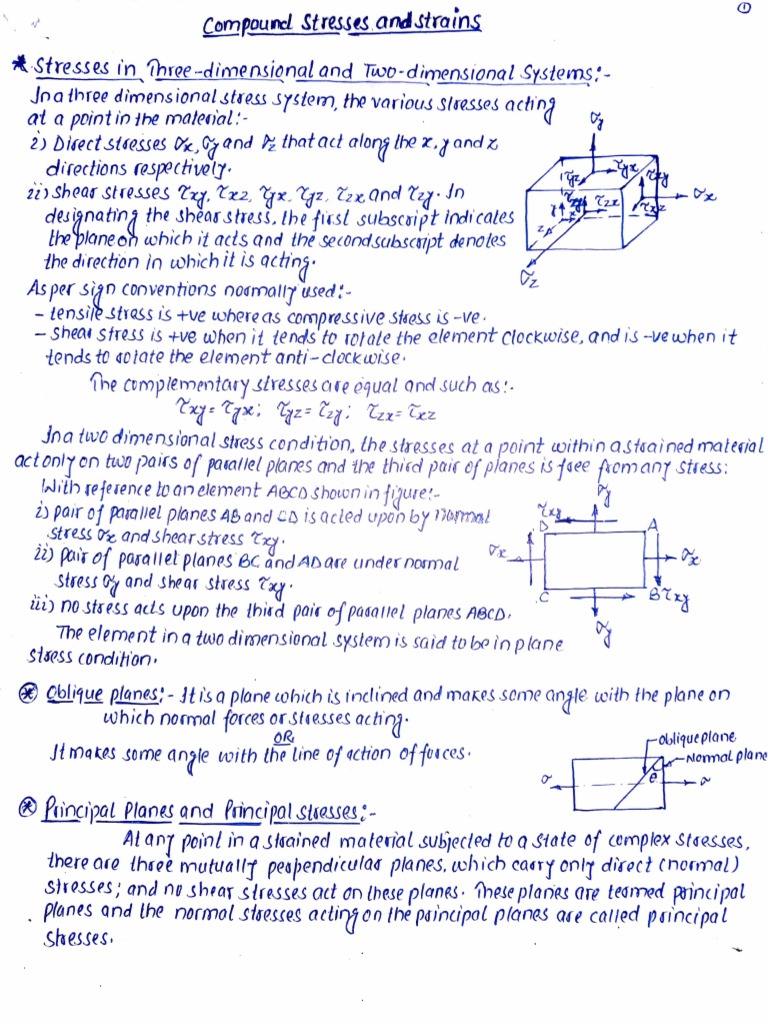 ①
Compound Stresses and strains
* Stresses in Three-dimensional and Two-dimensional Systems:-
In a three dimensional stress system, the various stresses acting
at a point in the material:-
i) Direct stresses σx, σy and σz that act along the x, y and z
directions respectively.
ii) shear stresses τxy, τxz, τyx, τyz, τzx and τzy. In
designating the shear stress, the first subscript indicates
the plane on which it acts and the second subscript denotes
the direction in which it is acting.
σy
τyx
τyz
τxy
τzy
τzx
τxz
y
x
z
σx
σz
As per sign conventions normally used:-
- tensile stress is +ve whereas compressive stress is -ve.
- shear stress is +ve when it tends to rotate the element clockwise, and is -ve when it
tends to rotate the element anti-clockwise.
The complementary stresses are equal and such as:-
τxy = τyx; τyz = τzy; τzx = τxz
In a two dimensional stress condition, the stresses at a point within a strained material
act only on two pairs of parallel planes and the third pair of planes is free from any stress:
With reference to an element ABCD shown in figure:-
i) pair of parallel planes AB and CD is acted upon by normal
stress σx and shear stress τxy.
ii) pair of parallel planes BC and AD are under normal
stress σy and shear stress τxy.
iii) no stress acts upon the third pair of parallel planes ABCD.
The element in a two dimensional system is said to be in plane
stress condition.
σy
τxy
D
A
σx
σx
C
B τxy
σy
⊛ Oblique planes:- It is a plane which is inclined and makes some angle with the plane on
which normal forces or stresses acting.
OR
It makes some angle with the line of action of forces.
oblique plane
Normal plane
θ
σ
σ
⊛ Principal Planes and Principal stresses:-
At any point in a strained material subjected to a state of complex stresses,
there are three mutually perpendicular planes, which carry only direct (normal)
stresses; and no shear stresses act on these planes. These planes are termed principal
planes and the normal stresses acting on the principal planes are called principal
stresses.